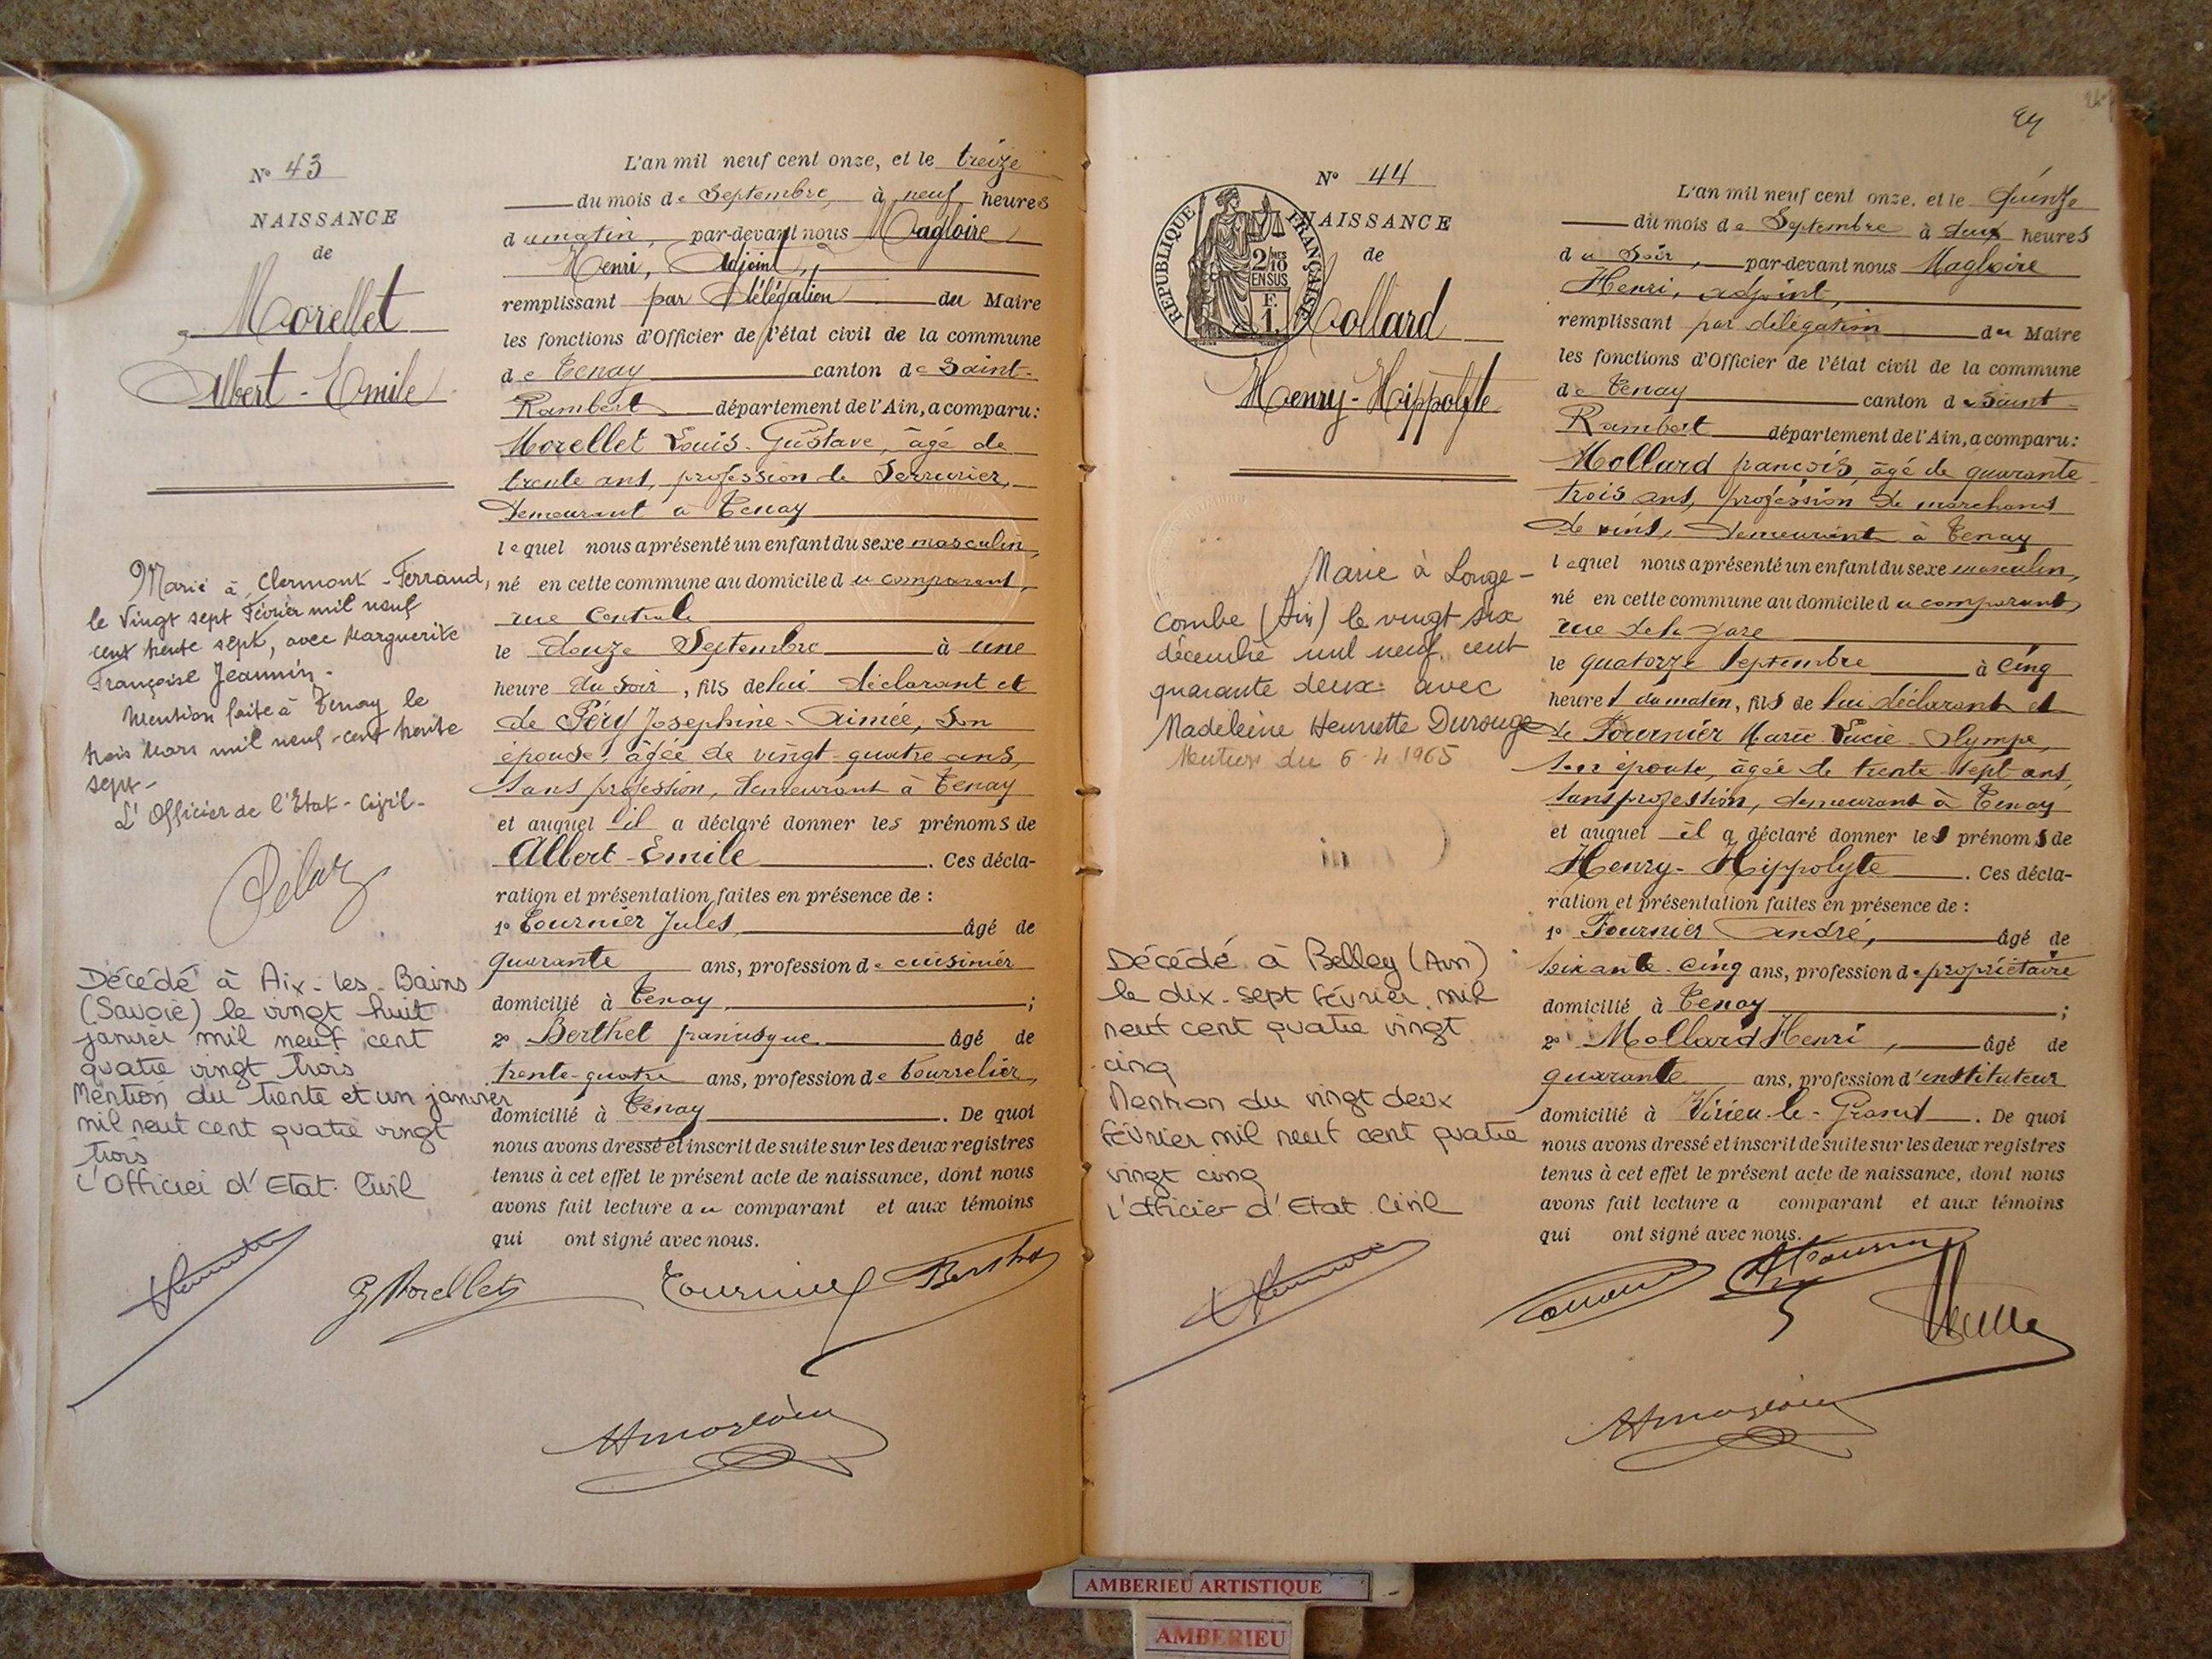 N° 43
NAISSANCE
de
Morellet
Albert-Emile
Marié à Clermont-Ferrand,
le Vingt sept Février mil neuf
cent trente sept, avec Marguerite
Françoise Jeannin.
Mention faite à Tenay le
trois Mars mil neuf-cent trente
sept-
L'Officier de l'Etat-Civil-
Décédé à Aix-les-Bains
(Savoie) le vingt huit
janvier mil neuf cent
quatre vingt trois
Mention du trente et un janvier
mil neuf cent quatre vingt
trois
L'Officier d'Etat Civil
L'an mil neuf cent onze, et le treize
du mois de Septembre, à neuf heures
du matin, par-devant nous Magloire
Henri, Adjoint,
remplissant par Délégation du Maire
les fonctions d'Officier de l'état civil de la commune
de Tenay canton de Saint-
Rambert département de l'Ain, a comparu:
Morellet Louis-Gustave, âgé de
trente ans, profession de Serrurier,
demeurant à Tenay
lequel nous a présenté un enfant du sexe masculin,
né en cette commune au domicile du comparant,
rue Centrale
le douze Septembre à une
heure du soir, fils de lui déclarant et
de Péry Josephine-Aimée, son
épouse, âgée de vingt-quatre ans,
sans profession, demeurant à Tenay
et auquel il a déclaré donner les prénoms de
Albert-Emile. Ces décla-
ration et présentation faites en présence de :
1° Tournier Jules, âgé de
quarante ans, profession de cuisinier
domicilié à Tenay, ;
2° Berthet franusque âgé de
trente-quatre ans, profession de bourrelier,
domicilié à Tenay. De quoi
nous avons dressé et inscrit de suite sur les deux registres
tenus à cet effet le présent acte de naissance, dont nous
avons fait lecture au comparant et aux témoins
qui ont signé avec nous.
G Morellet Tournier Berthet
HMagloire
24
N° 44
NAISSANCE
de
REPUBLIQUE FRANÇAISE
2 MES
10
EN SUS
F.
1.
Mollard
Henry-Hippolyte
Marié à Longe-
combe (Ain) le vingt six
décembre mil neuf cent
quarante deux avec
Madeleine Henriette Durouge
Mention du 6-4 1965
Décédé à Belley (Ain)
le dix-sept février mil
neuf cent quatre vingt
cinq
Mention du vingt deux
février mil neuf cent quatre
vingt cinq
L'officier d'Etat Civil
L'an mil neuf cent onze, et le quinze
du mois de Septembre à deux heures
du Soir, par-devant nous Magloire
Henri, adjoint,
remplissant par délégation du Maire
les fonctions d'Officier de l'état civil de la commune
de Tenay canton de Saint-
Rambert département de l'Ain, a comparu:
Mollard françois, âgé de quarante-
trois ans, profession de marchand
de vins, demeurant à Tenay
lequel nous a présenté un enfant du sexe masculin,
né en cette commune au domicile du comparant,
rue de la gare
le quatorze Septembre à cinq
heures du matin, fils de lui déclarant et
de Fournier Marie-Lucie-Olympe,
son épouse, âgée de trente-sept ans,
sans profession, demeurant à Tenay
et auquel il a déclaré donner les prénoms de
Henry-Hippolyte. Ces décla-
ration et présentation faites en présence de :
1° Fournier André, âgé de
soixante-cinq ans, profession de propriétaire
domicilié à Tenay ;
2° Mollard Henri, âgé de
quarante ans, profession d'instituteur
domicilié à Virieu-le-Grand. De quoi
nous avons dressé et inscrit de suite sur les deux registres
tenus à cet effet le présent acte de naissance, dont nous
avons fait lecture a comparant et aux témoins
qui ont signé avec nous.
HMagloire
AMBERIEU ARTISTIQUE
AMBERIEU